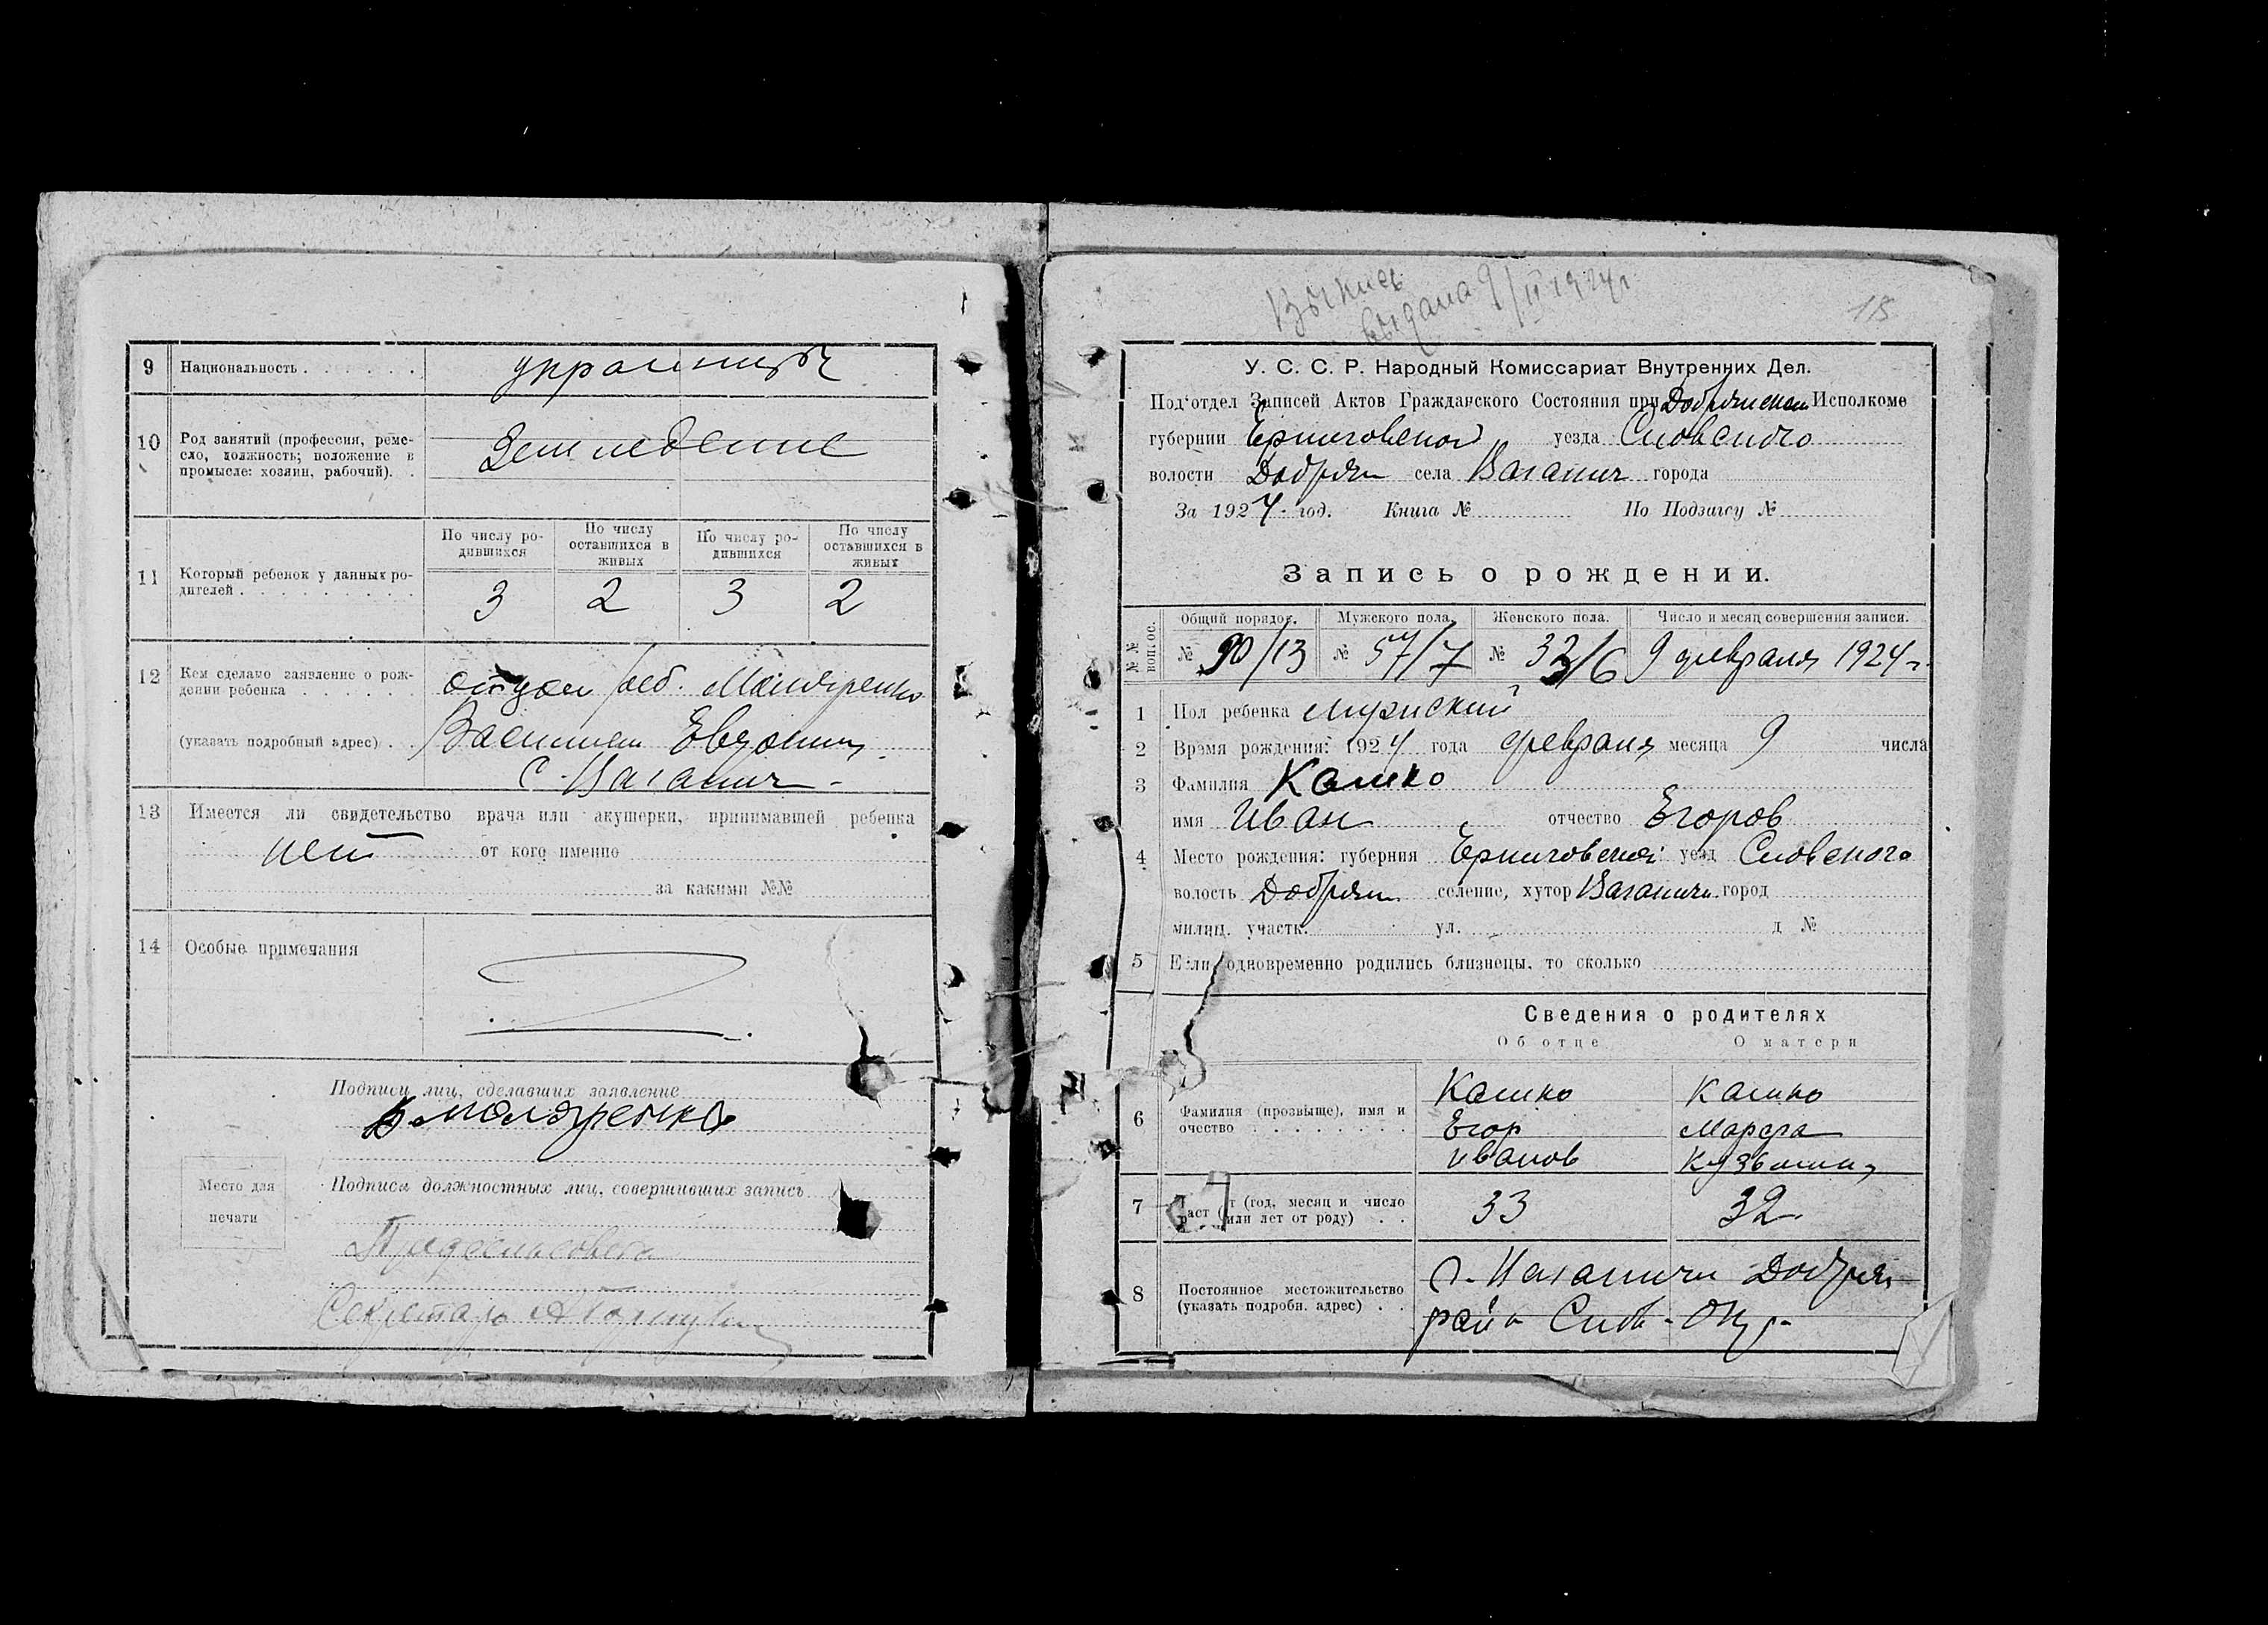 9 Национальность . . . . . . украинцы
10 Род занятий (профессия, реме-
сло, должность; положение в
промысле: хозяин, рабочий). . Земледелие
11 Который ребенок у данных ро-
дителей . . . . . . . . .
По числу ро-
дившихся
По числу
оставшихся в
живых
По числу ро-
дившихся
По числу
оставшихся в
живых
3 2 3 2
12 Кем сделано заявление о рож-
дении ребенка . . . . . . отцом реб.
(указать подробный адрес) . . Василием
с. Ваганич
13 Имеется ли свидетельство врача или акушерки, принимавшей ребенка
нет от кого именно
за какими №№
14 Особые примечания
Подписи лиц, сделавших заявление
Подписи должностных лиц, совершивших запись
Место для
печати
Предсельсовета
Секретарь
Выпись
выдана 9/II 1924 г.
У. С. С. Р. Народный Комиссариат Внутренних Дел.
Под'отдел Записей Актов Гражданского Состояния при Добрянском Исполкоме
губернии Черниговской уезда Сновского
волости Добрян села Ваганич города
За 1924 год. Книга № По Подзагсу №
Запись о рождении.
№№ вопрос.
Общий порядок. Мужского пола. Женского пола. Число и месяц совершения записи.
№ 90/13 № 57/7 № 33/6 9 февраля 1924 г.
1 Пол ребенка мужский
2 Время рождения: 1924 года февраля месяца 9 числа
3 Фамилия Кашко
имя Иван отчество Егоров
4 Место рождения: губерния Черниговской уезд Сновского
волость Добрян селение, хутор Ваганичи город
милиц. участк. ул. д №
5 Если одновременно родились близнецы, то сколько
Сведения о родителях
Об отце О матери
6 Фамилия (прозвыще), имя и
очество . . . . . . . .
Кашко Кашко
Егор Марфа
Иванов Кузьмина
7 (год, месяц и число
или лет от роду) . . 33 32
8 Постоянное местожительство
(указать подробн. адрес) . .
с. Ваганичи Добрян
район Снов. Окр.